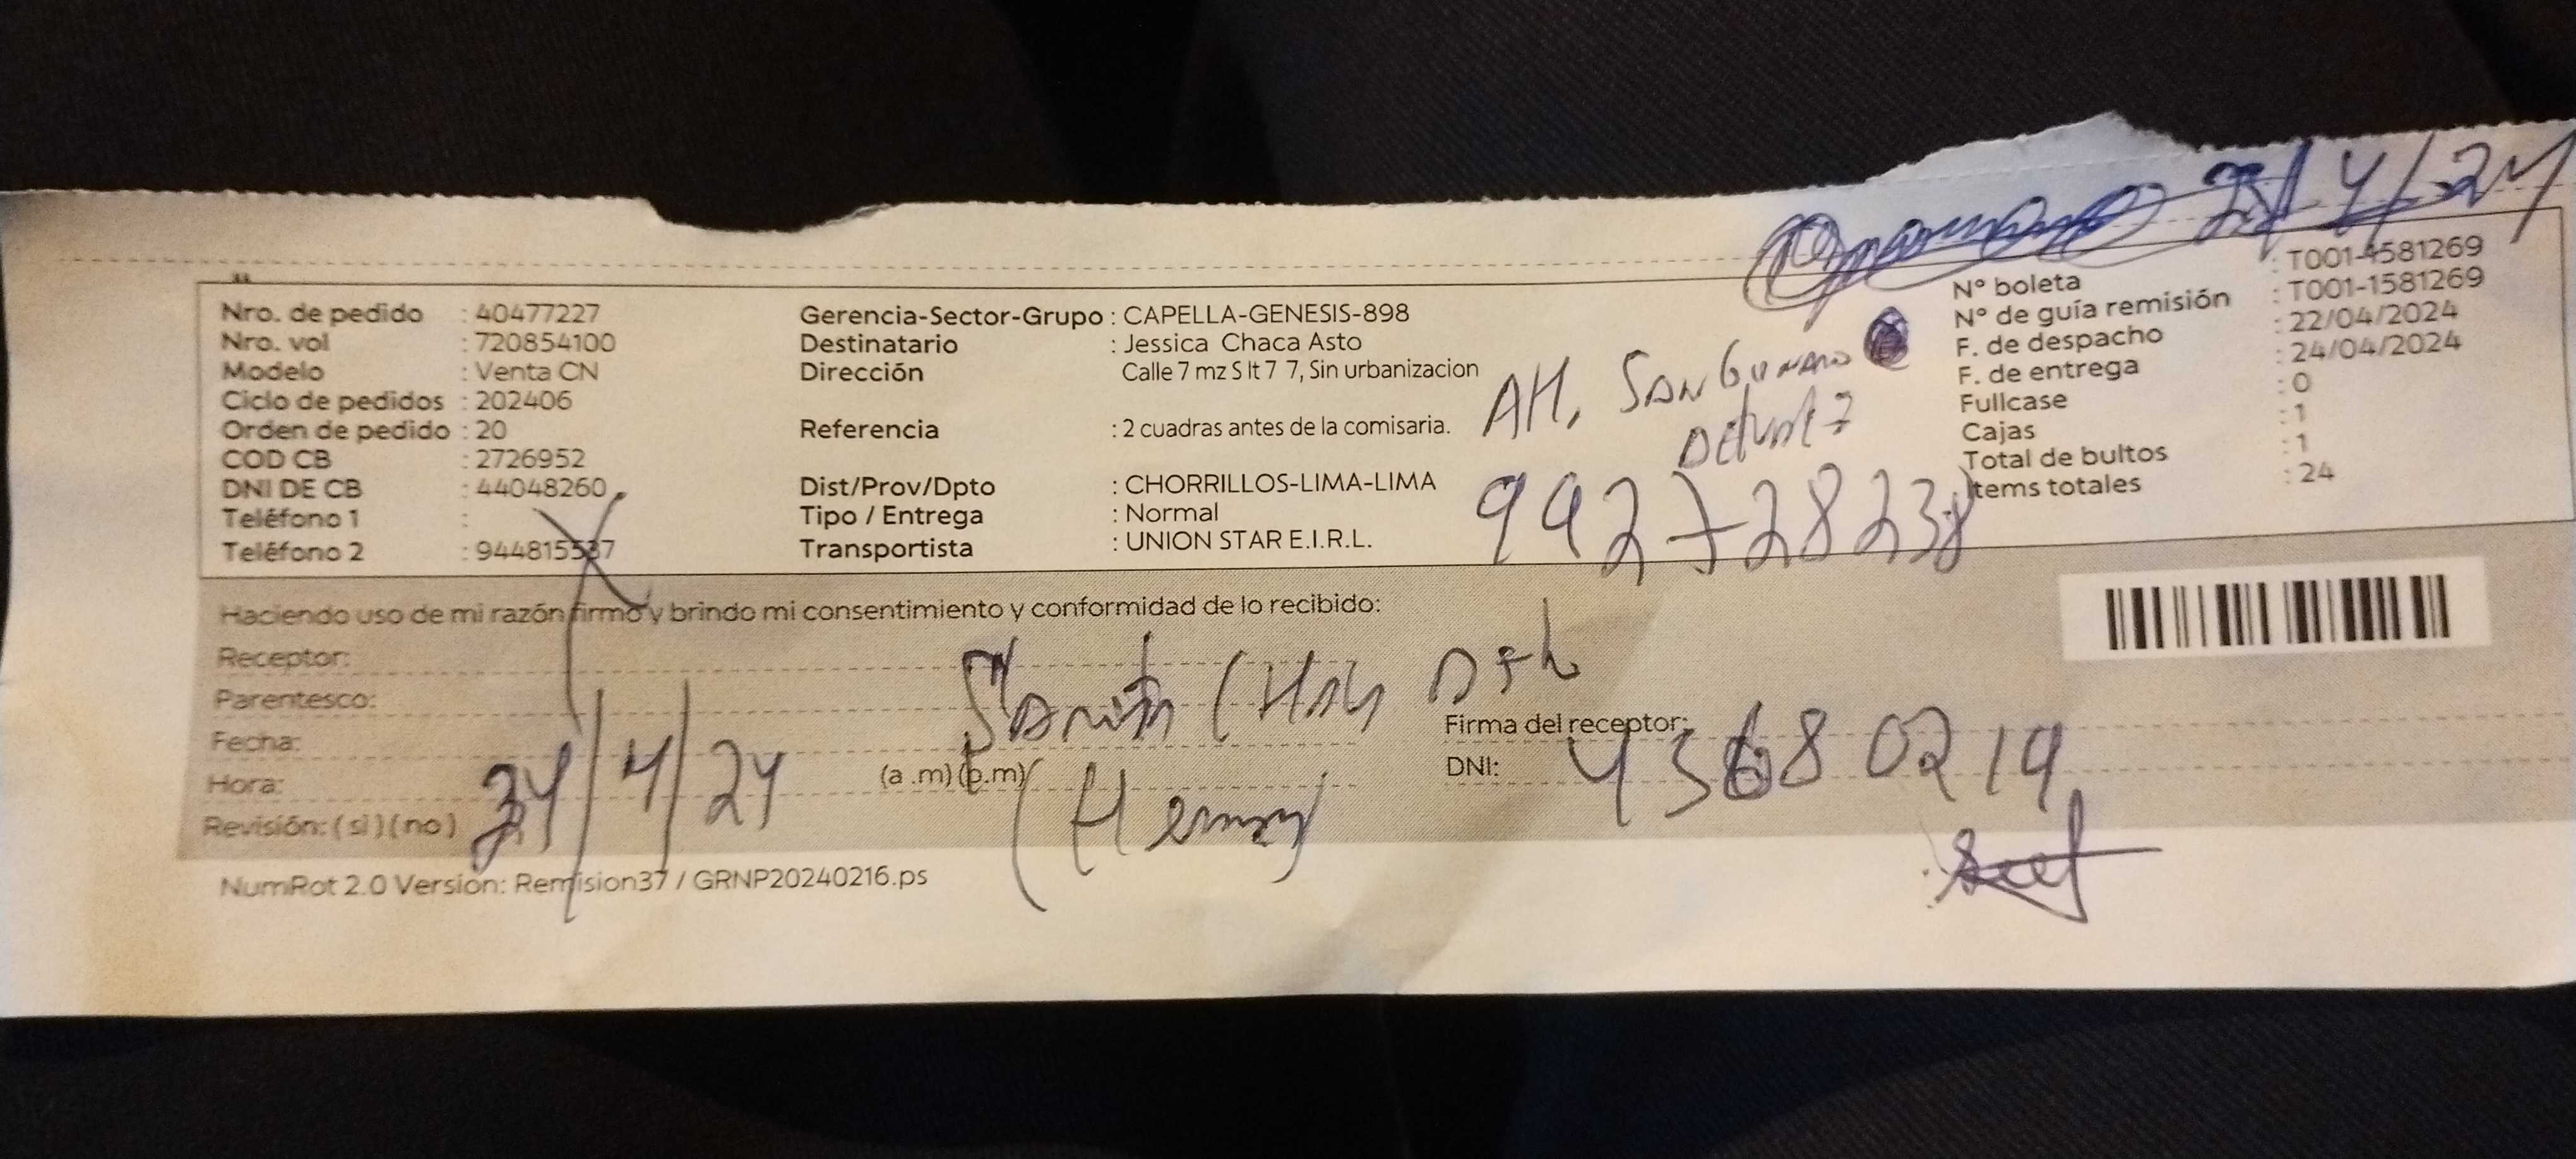 23/4/24
Nro. de pedido : 40477227
Nro. vol : 720854100
Modelo : Venta CN
Ciclo de pedidos : 202406
Orden de pedido : 20
COD CB : 2726952
DNI DE CB : 44048260
Teléfono 1 :
Teléfono 2 : 944815537
Gerencia-Sector-Grupo : CAPELLA-GENESIS-898
Destinatario : Jessica Chaca Asto
Dirección Calle 7 mz S lt 7 7, Sin urbanizacion
Referencia : 2 cuadras antes de la comisaria.
Dist/Prov/Dpto : CHORRILLOS-LIMA-LIMA
Tipo / Entrega : Normal
Transportista : UNION STAR E.I.R.L.
AH. SAN
992728238
N° boleta : T001-1581269
N° de guía remisión : T001-1581269
F. de despacho : 22/04/2024
F. de entrega : 24/04/2024
Fullcase : 0
Cajas : 1
Total de bultos : 1
Items totales : 24
Haciendo uso de mi razón firmo y brindo mi consentimiento y conformidad de lo recibido:
Receptor:
Parentesco:
Fecha:
Hora: (a .m) (p.m)
Revisión: ( si ) ( no )
24/4/24
Firma del receptor:
DNI: 45680219
NumRot 2.0 Version: Remision37 / GRNP20240216.ps